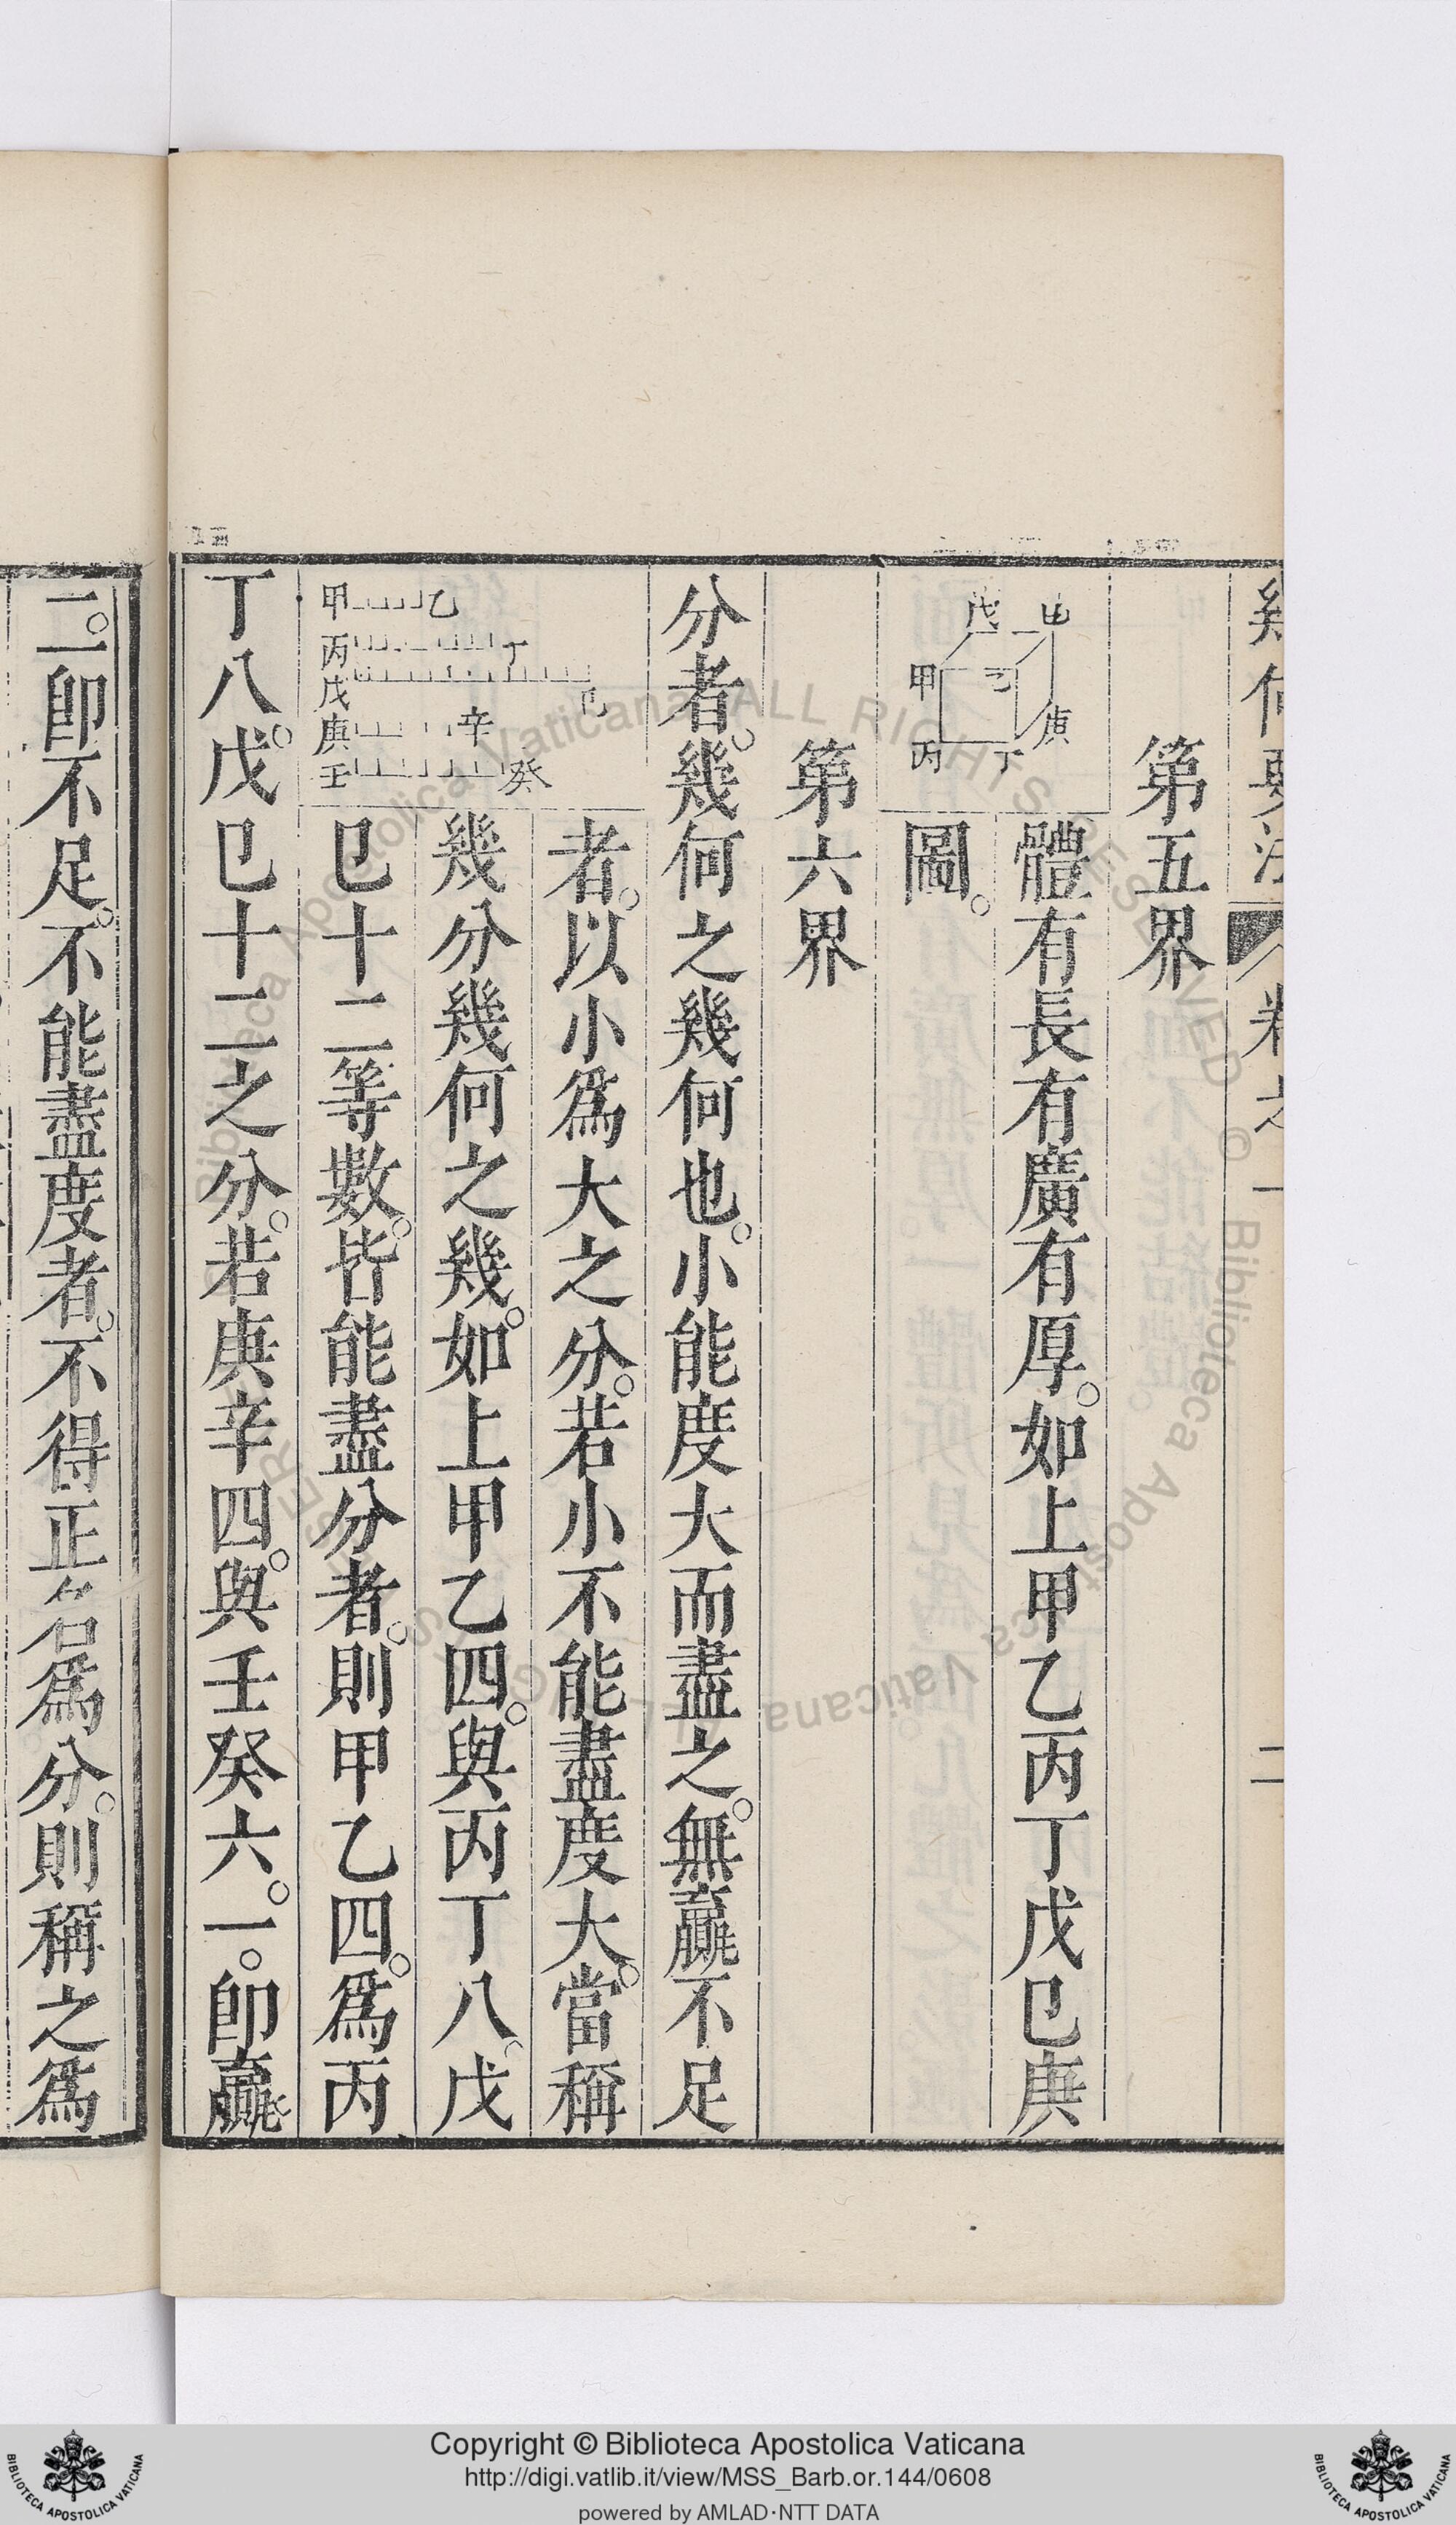 幾何要法 卷之一 二
第五界
體有長有廣有厚。如上甲乙丙丁戊巳庚
圖。
戊 由
甲 乙 庚
丙 丁
第六界
分者。幾何之幾何也。小能度大而盡之。無贏不足
者。以小爲大之分。若小不能盡度大。當稱
幾分幾何之幾。如上甲乙四。與丙丁八。戊
巳十二等數。皆能盡分者。則甲乙四。爲丙
甲 乙
丙 丁
戊 巳
庚 辛
壬 癸
丁八。戊巳十二之分。若庚辛四。與壬癸六。一。卽贏。
二。卽不足。不能盡度者。不得正名爲分。則稱之爲
Copyright © Biblioteca Apostolica Vaticana
http://digi.vatlib.it/view/MSS_Barb.or.144/0608
powered by AMLAD·NTT DATA
BIBLIOTECA APOSTOLICA VATICANA
BIBLIOTECA APOSTOLICA VATICANA